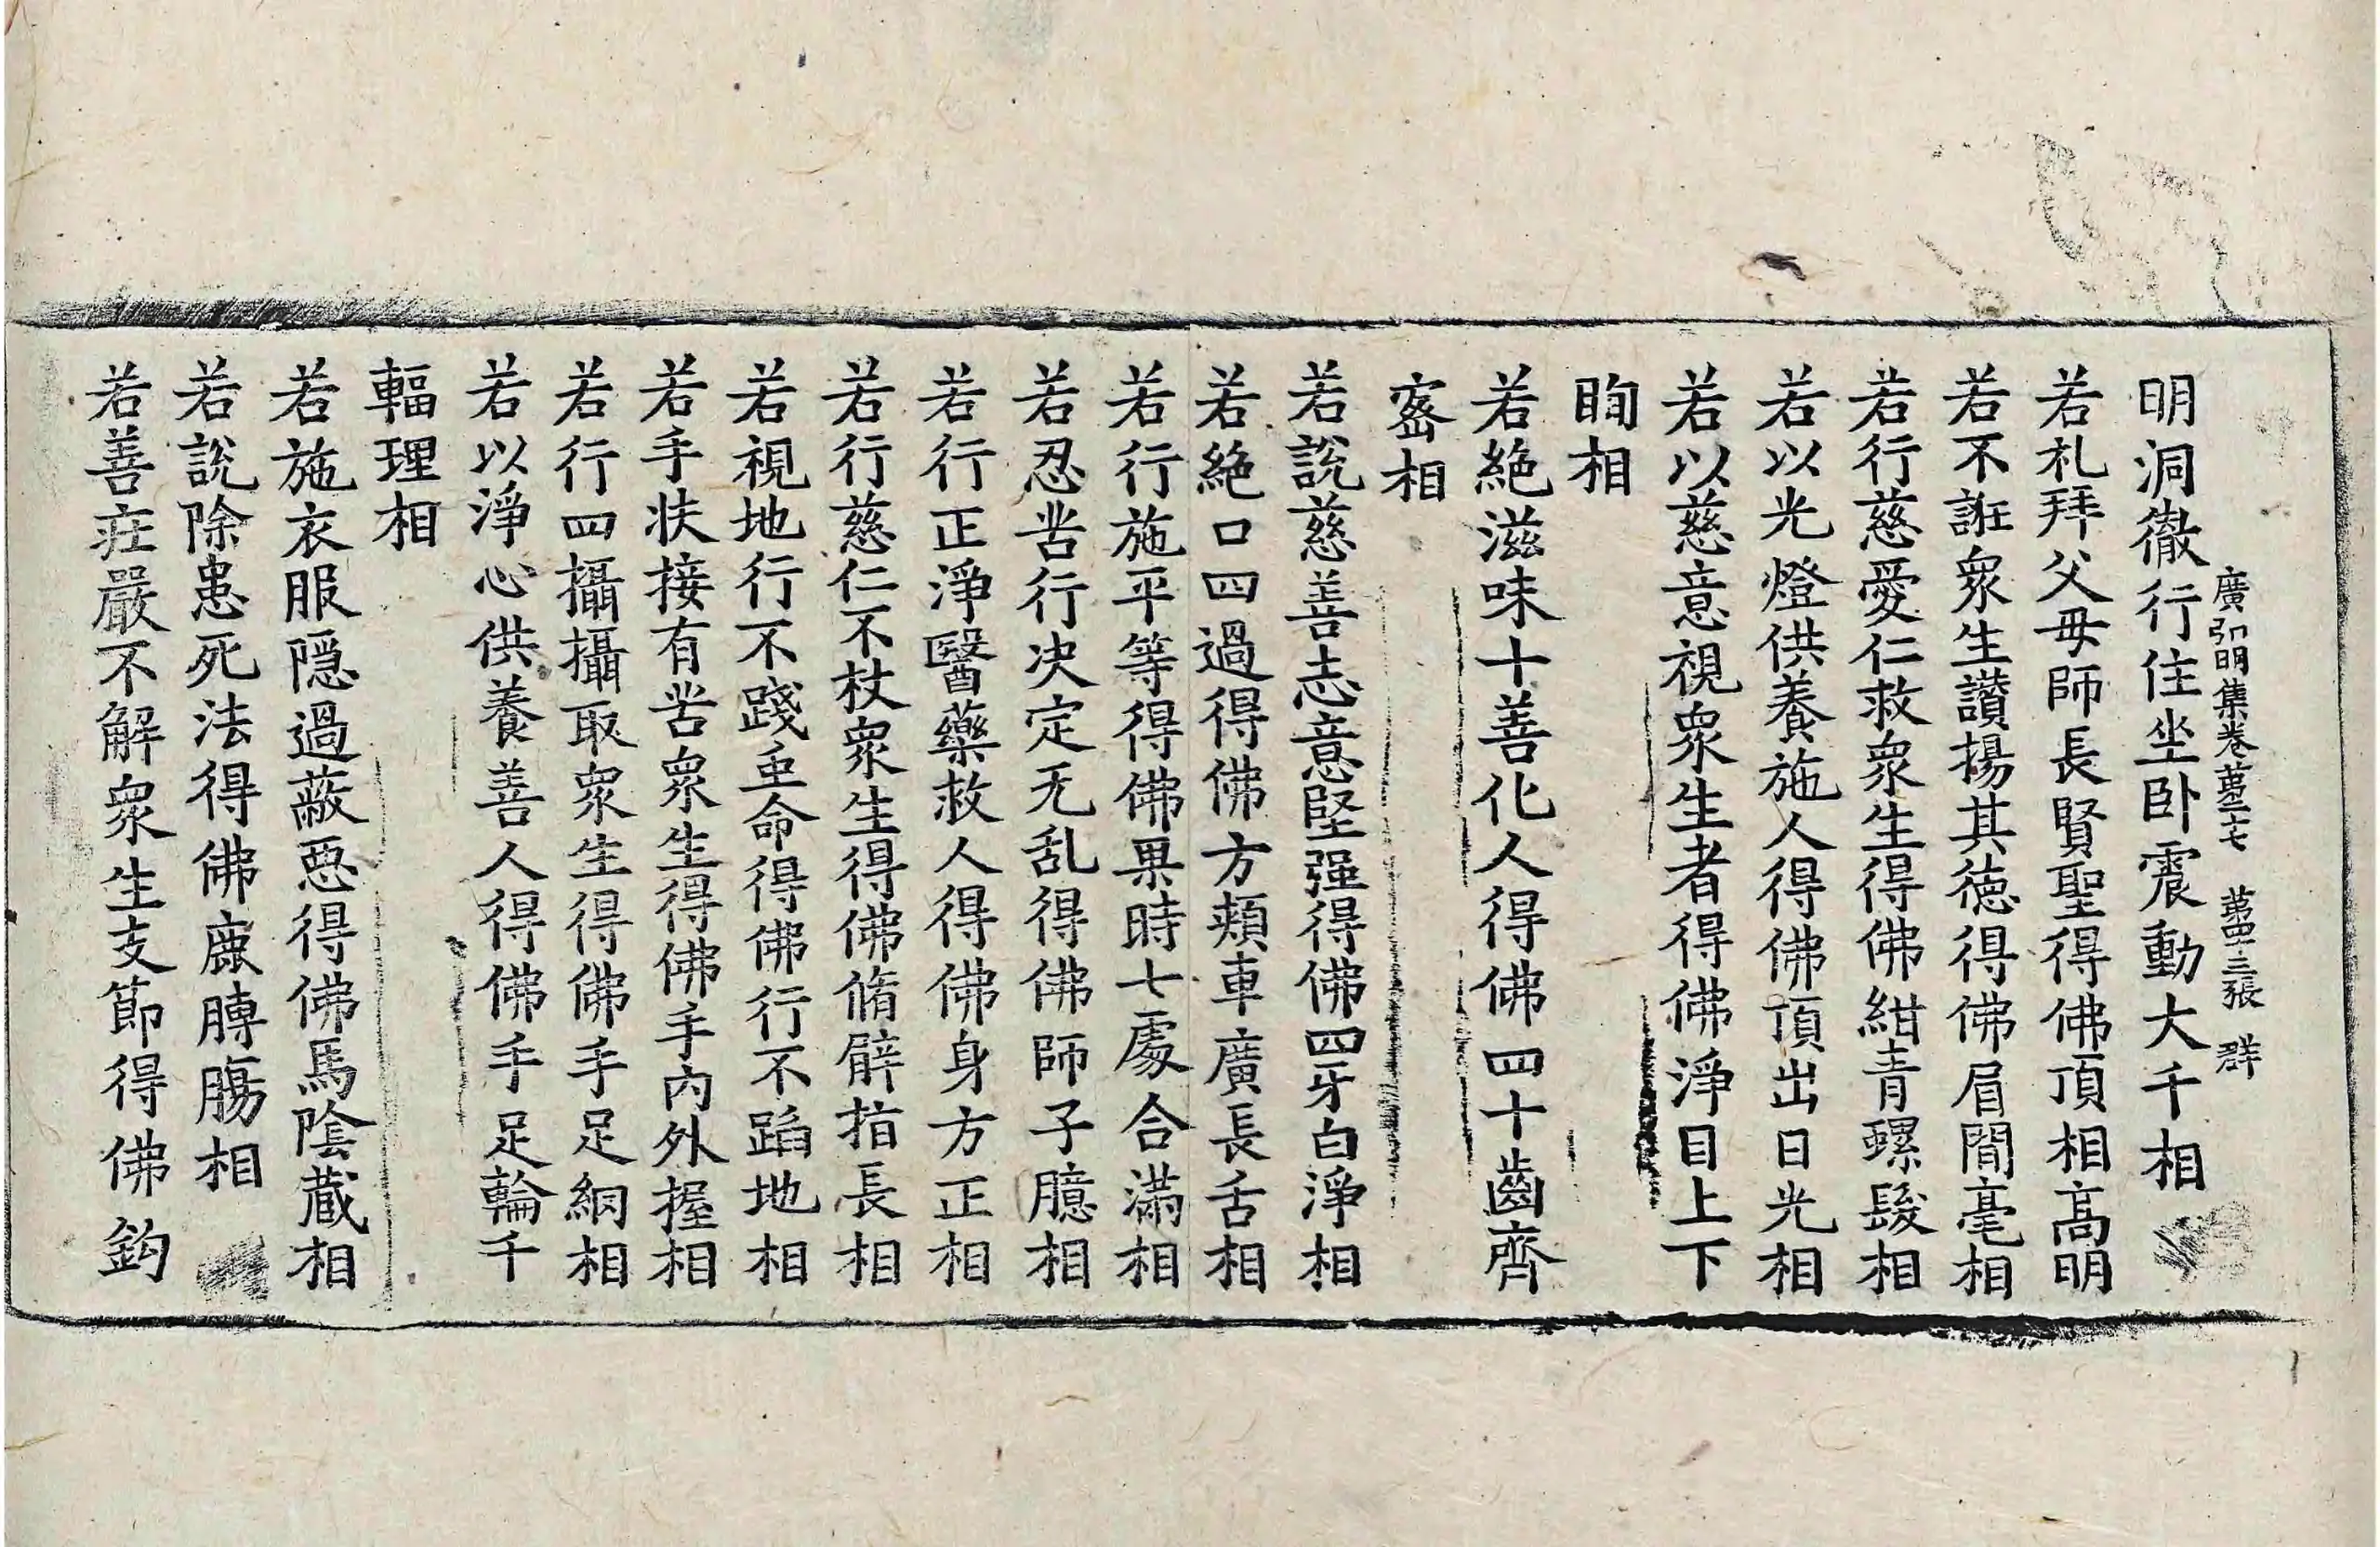 廣弘明集卷苐二七　苐四十三張　群
明洞徹行住坐卧震動大千相
若礼拜父母師長賢聖得佛頂相高明
若不誑衆生讃揚其徳得佛眉間毫相
若行慈愛仁救衆生得佛紺青螺髮相
若以光燈供養施人得佛頂出日光相
若以慈意視衆生者得佛淨目上下
眴相
若絶滋味十善化人得佛四十齒齊
宻相
若說慈善志意堅强得佛四牙白淨相
若絶口四過得佛方頰車廣長舌相
若行施平等得佛果時七處合滿相
若忍苦行决定无乱得佛師子臆相
若行正淨醫藥救人得佛身方正相
若行慈仁不杖衆生得佛脩臂指長相
若視地行不踐虫命得佛行不蹈地相
若手扶接有苦衆生得佛手内外握相
若行四攝攝取衆生得佛手足網相
若以淨心供養善人得佛手足輪千
輻理相
若施衣服隱過蔽惡得佛馬陰蔵相
若說除患死法得佛鹿膞膓相
若善莊嚴不解衆生支節得佛鈎